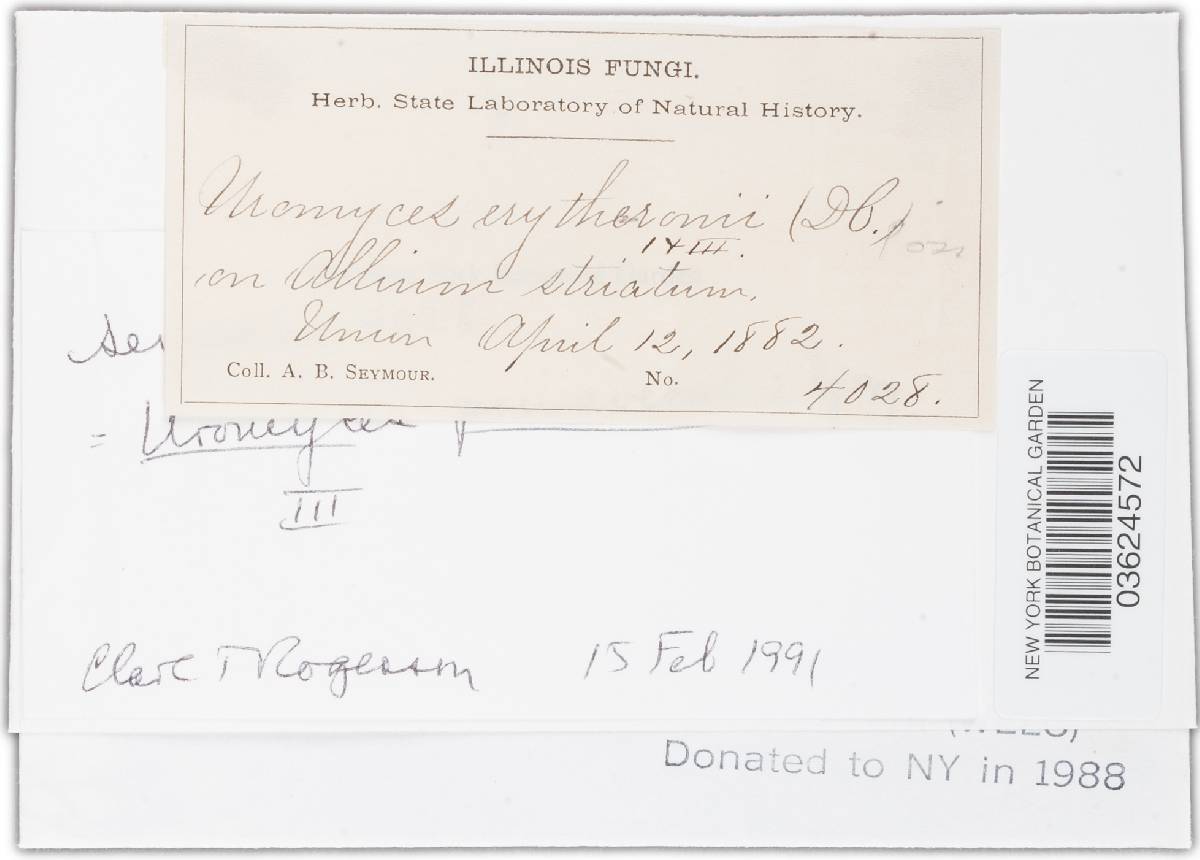 ILLINOIS FUNGI.
Herb. State Laboratory of Natural History.
Uromyces erytheronii (DC.)
I & III.
on Allium striatum.
Union April 12, 1882.
Coll. A. B. SEYMOUR. No. 4028.
= Uromyces
III
Clark T Rogerson 15 Feb 1991
NEW YORK BOTANICAL GARDEN
03624572
Donated to NY in 1988